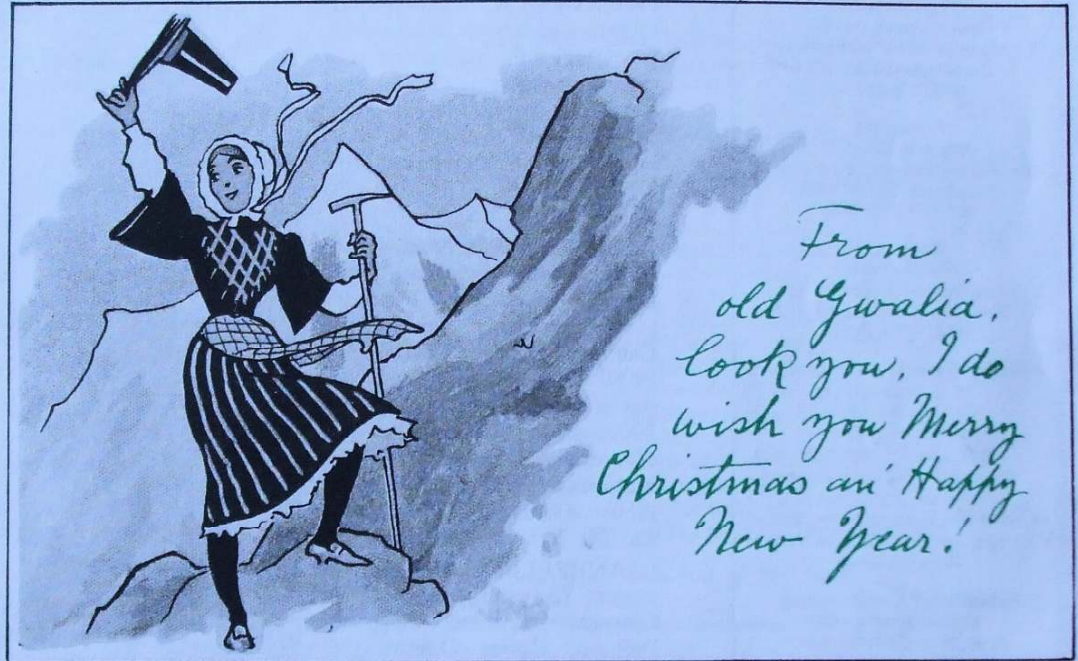 From
old Gwalia,
look you, I do
wish you Merry
Christmas an' Happy
New Year!